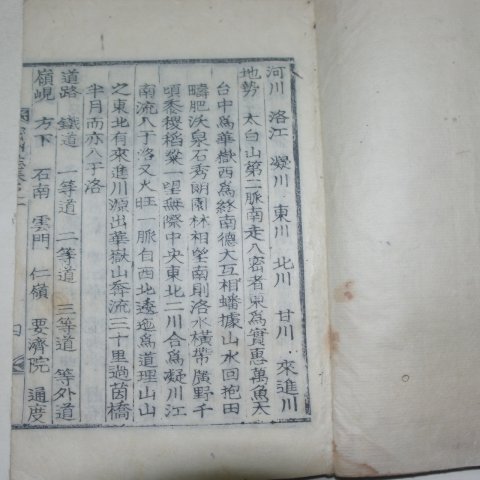 河川 洛江 凝川 東川 北川 甘川 來進川
地勢 太白山第二脈南走入密者東爲實惠萬魚天
台中爲華嶽西爲終南德大互相蟠據山水回抱田
疇肥沃泉石秀朗園林相望南則洛水橫帶廣野千
頃黍稷稻粱一望無際中央東北二川合爲凝川江
南流入于洛又火旺一脈自西北透迤爲道理山山
之東北有來進川源出華嶽山奔流三十里過茵橋
半月而亦入于洛
道路 鐵道 一等道 二等道 三等道 等外道
嶺峴 方下 石南 雲門 仁嶺 要濟院 通度